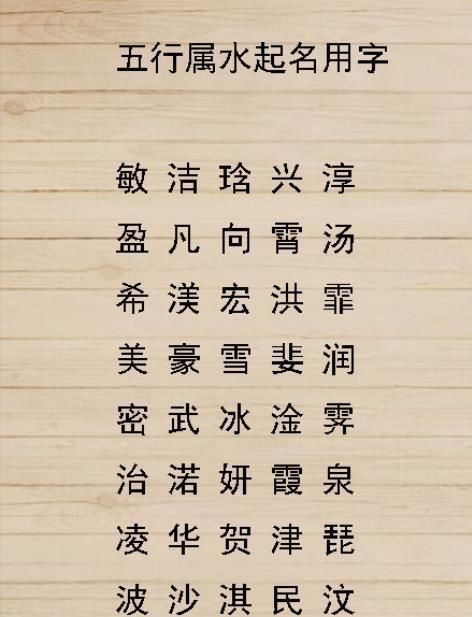 五行属水起名用字
敏 洁 琀 兴 淳
盈 凡 向 霄 汤
希 渼 宏 洪 霏
美 豪 雪 斐 润
密 武 冰 淦 霁
治 渃 妍 霞 泉
凌 华 贺 津 琵
波 沙 淇 民 汶